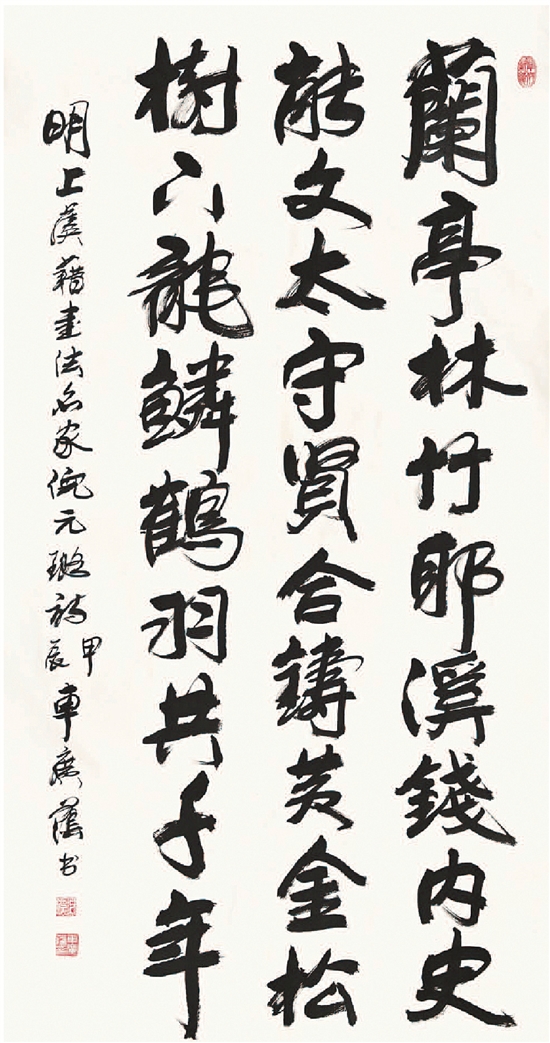 蘭亭林竹耶溪錢内史
能文太守賢合鑄黄金松
樹下龍鱗鶴羽共千年
明上虞籍書法名家倪元璐詩甲辰車廣蔭书